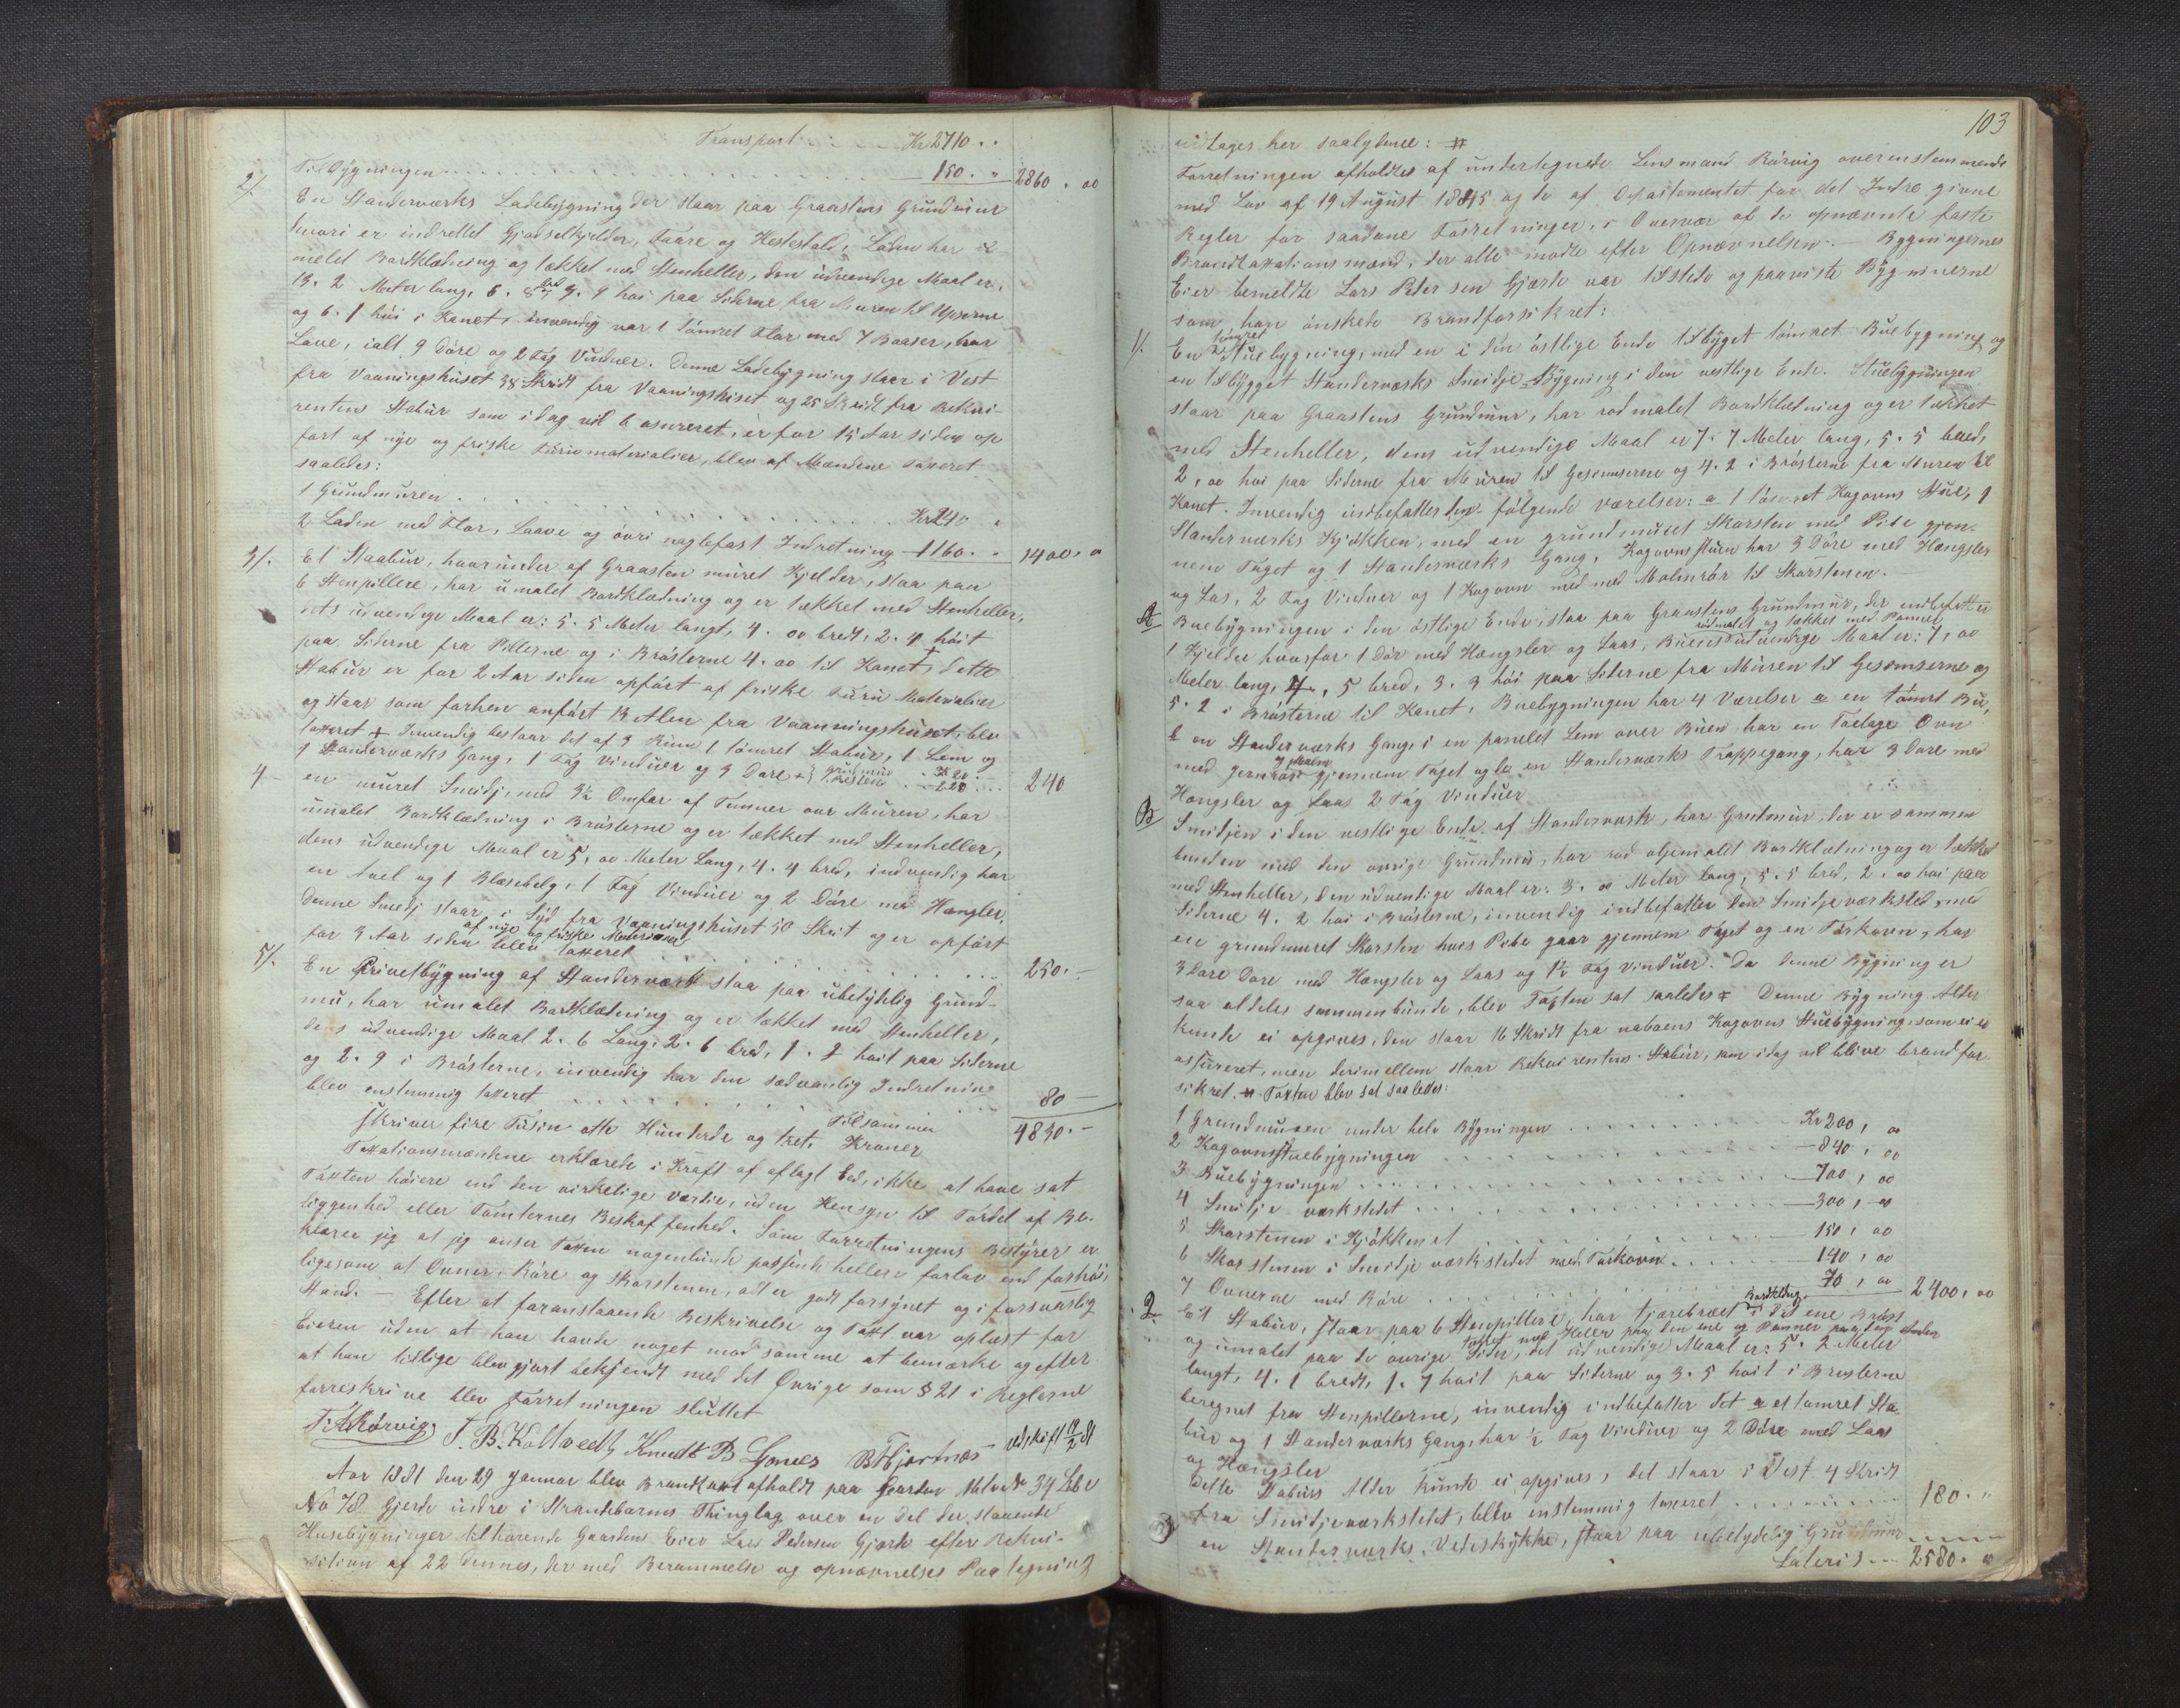 Transport : Kr 2710 . .
Tilbygningen . . . . 150 . " 2860 . 00
2/. En Standerværks Ladebygning der staar paa Graastens Grundmur
hvori er indrettet Gjødselkjelder, Faare og Hestestald, Laden har u-
malet Bordklædning og tækket med Stenheller, den udvendige Maal er,
13. 2 Meter lang, 6. 8 bred 3. 9 høi paa Siderne fra Muren til Upserne
og 6. 1 høi i Kanet, invendig var 1 tömret Flor med 7 Baaser, har
Lave, ialt 9 Döre og 2 Fag Vinduer. Denne Ladebygning staar i Vest
fra Vaaningshuset 38 Skridt fra Vaaningshuset og 25 Skridt fra Rekvi-
rentens Stabur som idag vil b asureret, er for 15 Aar siden op
fort af nye og friske Furumaterialier, blev af Mændene Taxeret
saaledes:
1 Grundmuren . . . . Kr 240 "
2 Laden med Flor, Laave og övri naglefast Indretning - 1160 . " 1400 . 0
3/. Et Staabur, hvorunder af Graasten muret Kjelder, staa paa
6 Stenpillere, har umalet Bordklædning og er tækket med Stenheller,
dets udvendige Maal er: 5. 5 Meter langt, 4. 00 bredt, 2. 4 höit
paa Siderne fra Pillerne og i Brösterne 4. 00 til Kanet, dette
Stabur er for 2 Aar siden opfört af friske Furu Materialier
og staar som forhen anfört 13 Alen fra Vaanningshuset, blev
taxeret + Invendig bestaar det af 3 Rum 1 tömret Stabur, 1 Lem og
1 Standerværks Gang, 1 Fag Vinduer og 3 Döre + 1 grundmur Kr 20 . - 2 Resten - 220 . - 240
4 - en muret Smidj, med 3½ Omfar af Tömmer over Muren, har
umalet Bordklædning i Brösterne og er tækket med Stenheller,
dens udvendige Maal er 5, 00 Meter Lang, 4. 4 bred, indvendig har
en Avel og 1 Blæsebelg, 1 Fag Vinduer og 2 Döre med Hængler.
Denne Smedj staar i Syd fra Vaaningshuset 50 Skrit og er opfört
af nye og friske Materialier
for 3 Aar siden blev taxeret . . . . 250 . -
5/. En Privetbygning af Standerværk staa paa ubetydelig Grund-
mu, har umalet Bordklædning og er tækket med Stenheller,
dens udvendige Maal 2. 6 Lang, 2. 6 bred, 1. 7 høit paa Siderne
og 2. 9 i Brösterne, invendig har den sædvanlig Indretning
blev enstemmig taxeret . . . . 80 -
Tilsammen 4830 . -
skriver fire Tusin otte Hunderde og treti Kroner
Taxationsmændene erklærede i Kraft af aflagt Eed, ikke at have sat
Taxten höiere end den virkelige værdie, uden Hensyn til Fordel af Be-
liggenhed eller Tomternes Beskaffenhed. Som Forretningens Bestyrer er
klærer jeg at jeg anser Taxten nogenlunde passende hellere forlav end forhöi,
ligesom at Ovner, Röre og Skorstenne, alt er godt forsynet og i forsvarslig
Stand. — Efter at foranstaaende Beskrivelse og Taxt var oplæst for
Eieren uden at han havde noget mod samme at bemærke og efter
at han tillige blev gjort bekjendt med det Övrige som § 21 i Reglerne
forreskrive blev Forretningen sluttet
Rörvig J. B. Kollwedt Knudt B Hjortnæs udskrift 12/2 81
Aar 1881 den 29 Januar blev Brandtaxt afholdt paa Gaarden Matr Nr 34 Löbe
No 78 Gjerde indre i Strandebarms Thinglag over en del der staaende
Husebygninger tilhörende Gaardens Eier Lars Petersen Gjerde efter Rekvi-
sition af 22 dennes, der med Berammelse og opnævnelses Paategning
103
indtages her saalydende: #
Forretningen afholdtes af undertegnede Lensmand Rörvig overenstemmende
med Lov af 19 August 1845 og de af Departementet for det Indre givne
Regler for saadane Forretninger, i Overvær af de opnævnte faste
Brandtaxationsmænd, der alle mödte efter Opnævnelsen. — Bygningernes
Eier bemeldte Lars Petersen Gjærde var tilstede og paaviste Bygninerne
som han önskede Brandforsikret:
1/. En tömret Stuebygning, med en i den östlige Ende tilbyget tömret Buebygning og
en tilbygget Standerværks Smidje Bygning i den vestlige Ende. Stuebygningen
staar paa Graastens Grundmur, har rödmalet Bordklædning og er tækket
med Stenheller, dens udvendige Maal er 7. 7 Meter lang, 5. 5 bred,
2, 00 høi paa Siderne fra Muren til Gesimserne og 4. 2 i Brösterne fra Muren til
Kanet. Invendig indbefatter den fölgende værelser: a 1 tömret Kagovns Stue, 1
Standerværks Kjökken, med en grundmuret Skorsten med Pibe gjen-
nem Taget og 1 Standerværks Gang. Kagovns stuen har 3 Döre med Hængsler
og Las, 2 Fag Vinduer og 1 Kagovn med med Malmrör til Skorstenen. —
A Buebygningen i den östlige Ende, staa paa Graastens Grundmur, der indbefatter
rödmalet og tækket med Panner
1 Kjelder hvorfor 1 Dör med Hængsler og Laas, Buens udvendige Maal er: 7, 00
Meter lang, 4, 5 bred, 3. 3 höi paa Siderne fra Muren til Gesimserne og
5. 2 i Brösterne til Kanet. Buebygningen har 4 Værelser a en tömret Bu,
b en Standerværks Gang, i en panelet Lem over Buen har en Toetage Ovn
med jernrör gjennem Taget og en Standerværks Trappegang, har 3 Döre med
Hængsler og Laas 2 Fag Vinduer
B Smidjen i den vestlige Ende af Standerværk, har Grudmur, der er sammen
bunden med den övrige Grundmu, har röd oljemalet Bordklædning og er tækket
med Stenheller, den udvendige Maal er: 3. 00 Meter lang, 5. 5 bred, 2. 00 høi paa
Siderne 4. 2 høi i Brösterne, invendig indbefatter den Smidjeværksted, med
en grundmuret Skorsten hvis Pibe gaar gjennem Taget og en Törkovn, har
3 Döre Döre med Hængsler og Laas og 1½ Fag Vinduer. Da denne Bygning er
saa aldeles sammenbunde, blev Taxten sat saaledes # Denne Bygning Alder
kunde ei opgives, den staar 16 Skridt fra naboens Kagovns Stuebygning, som ei er
assureret, men derimellem staar Rekvirentens Stabur, som idag vil blive brandfor-
sikret. # Taxten blev sat saaledes:
1 Grundmuren under hele Bygningen . . . . Kr 200, 00
2 Kagovnsstuebygningen . . . . - 840, 00
3 Buebygningen . . . . - 700, 00
4 Smidje værkstedet . . . . - 300, 00
5 Skorstenen i Kjökkenet . . . . 150, 00
6 Skorstenen i Smidje værkstedet med Törkovn . . . . 140, 00
7 Ovnerne med Röre . . . . 70, 00 2400, 00
2 Et Stabur, staar paa 6 Stenpillere, har tjærebræet Bordklædng. i det ene Bröst
tækket med Heller paa den ene og Panner paa den Anden
og umalet paa de övrige Sider, det udvendige Maal er: 5. 2 Meter
langt, 4. 1 bredt, 1. 7 hoit paa Siderne og 3. 5 hoit i Brösterne
beregnet fra Stenpillerne, invendig indbefatter det a et tömret Sta-
bur og 1 Standerværks Gang, har ½ Fag Vinduer og 2 Döre med Laas
og Hængsler
Dette Staburs Alder kunde ei opgives, det staar i Vest 4 Skridt
fra Smidjeværkstedet, blev enstemmig taxeret . . . . 180 . "
en Standerværks Vedeskykke, staar paa ubetydelig Grundmur
Lateris - 2580 . "